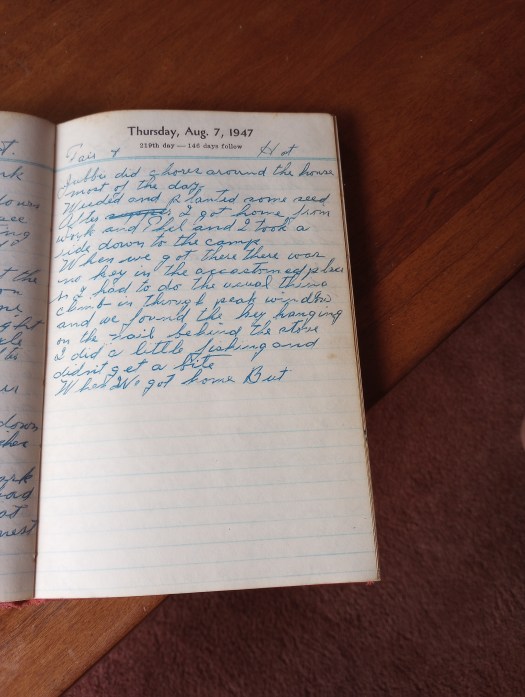 Thursday, Aug. 7, 1947
219th day — 146 days follow
Fair & Hot
did chores around the house
most of the day.
Weeded and planted some seed
I got home from
work and Phel and I took a
ride down to the camp.
When we got there there was
no key in the accostomed place
so I had to do the usual thing
climb in though peak window
and we found the key hanging
on the nail behind the stove
I did a little fishing and
didn't get a bite
When We got home But